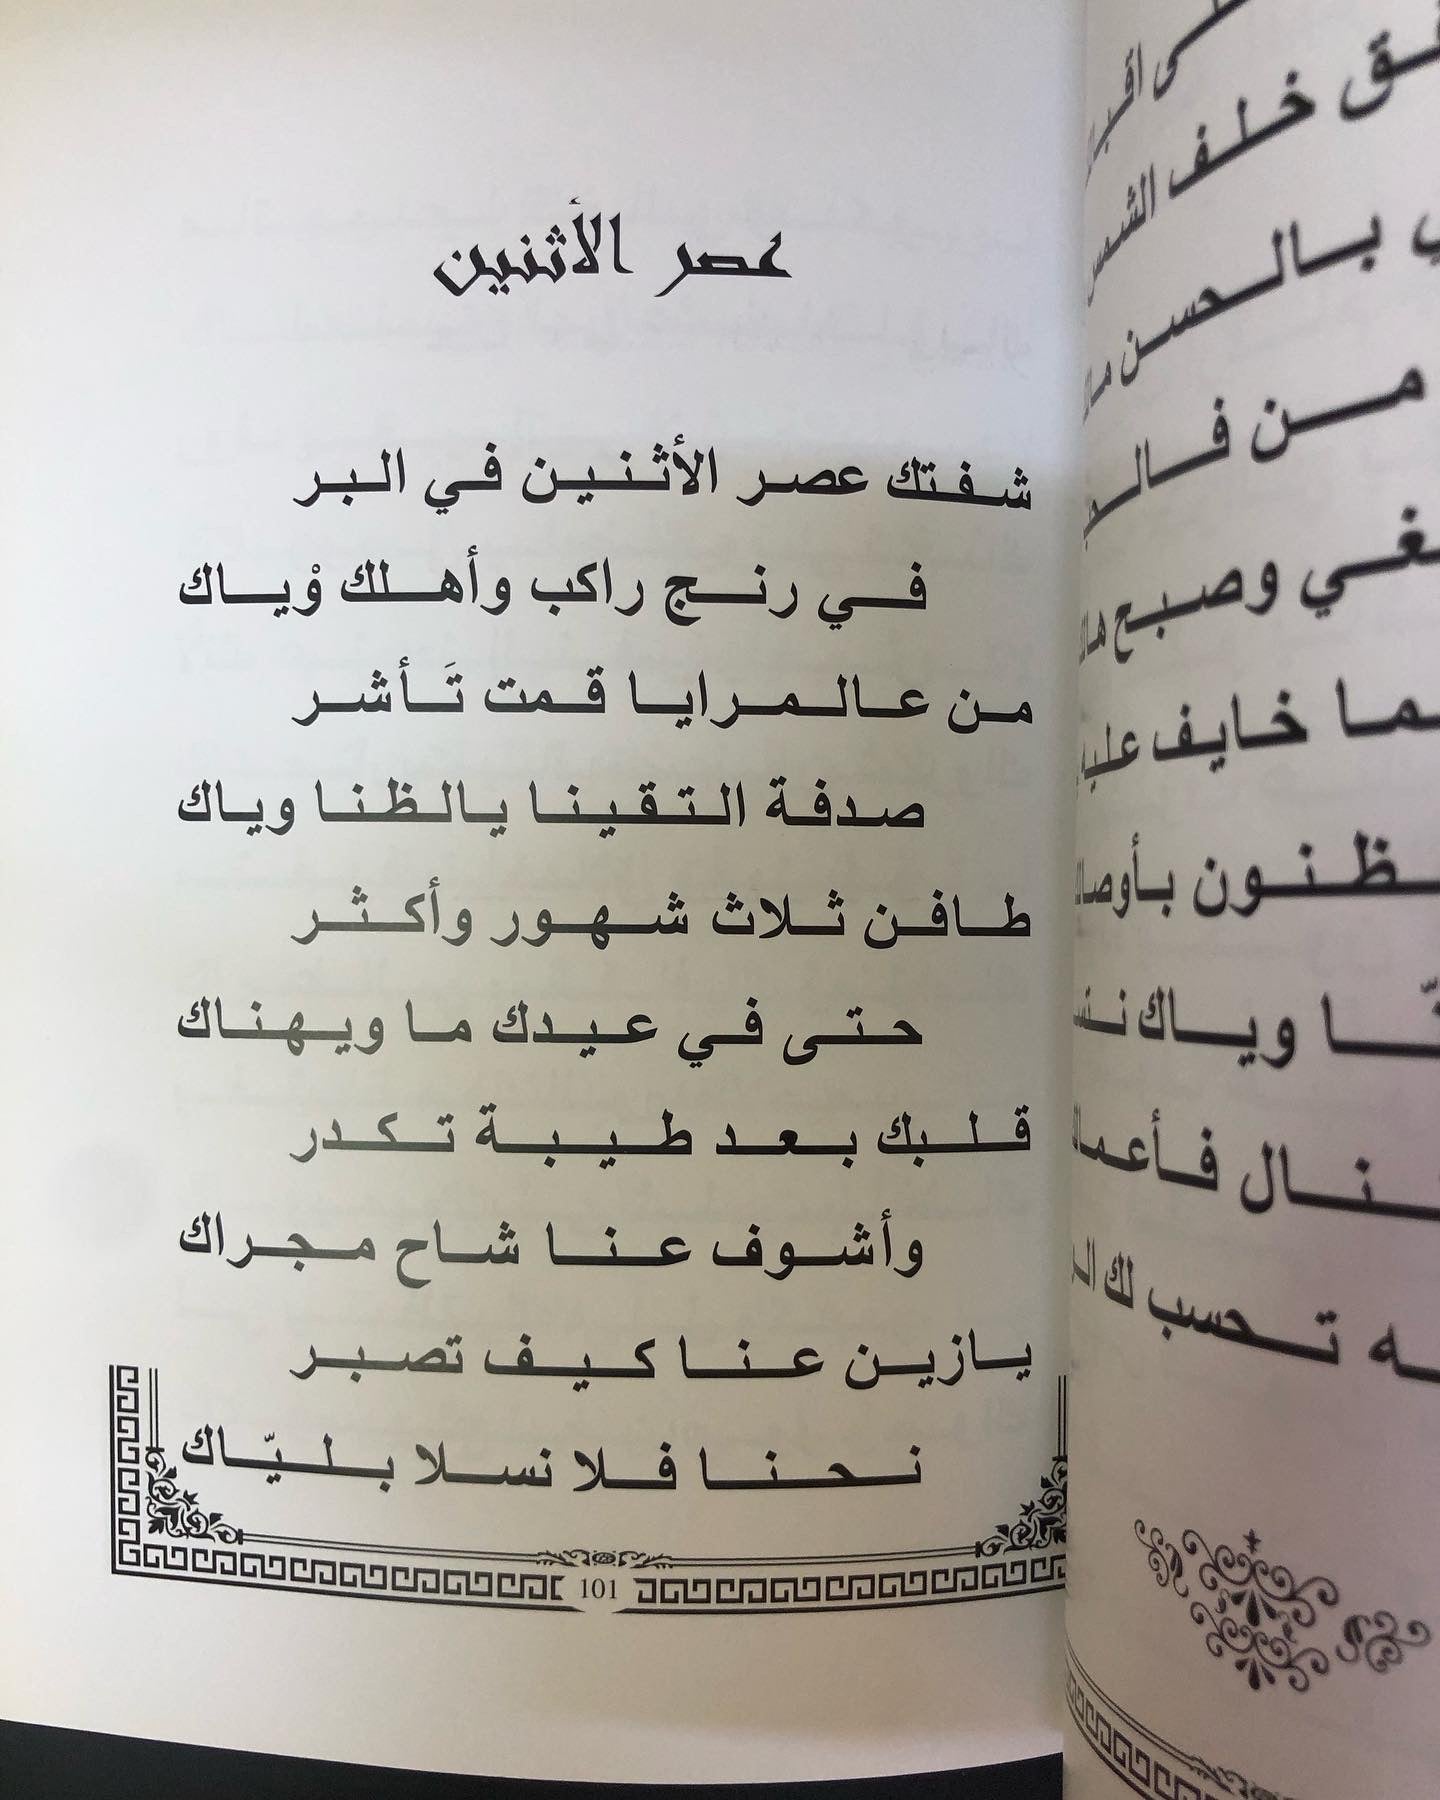 عصر الأثنين
شفتك عصر الأثنين في البر
في رنج راكب وأهلك وْياك
من عالمرايا قمت تَأشر
صدفة التقينا يالظنا وياك
طافن ثلاث شهور وأكثر
حتى في عيدك ما ويهناك
قلبك بعد طيبة تكدر
وأشوف عنا شاح مجراك
يازين عنا كيف تصبر
نحنا فلا نسلا بليّاك
101
خلف الشمس
بالحسن
من
وصبح
خايف عليه
بأوصالك
وياك
تحسب لك